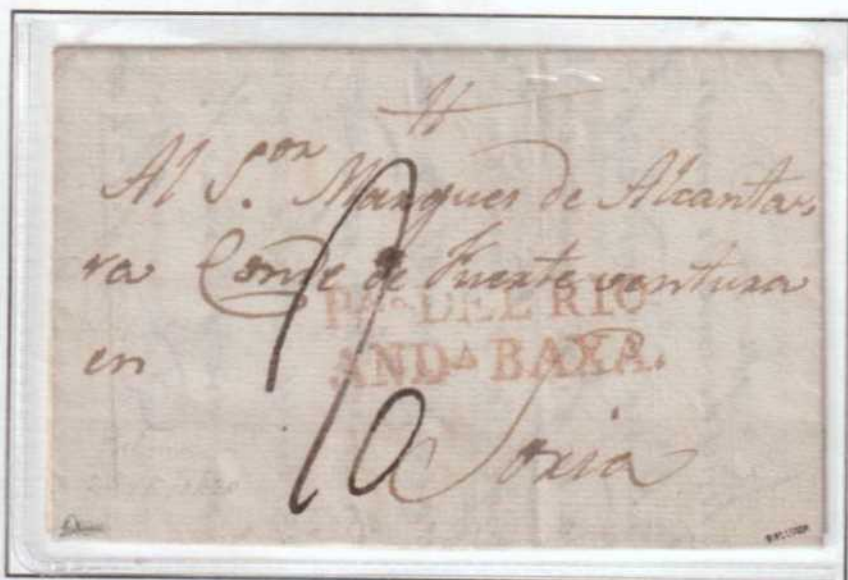 Al S.ʳ ᵒʳ Marques de Alcanta-
ra Conde de Fuerteventura
en
PA. DEL RIO
ANDA BAXA.
10
Soria